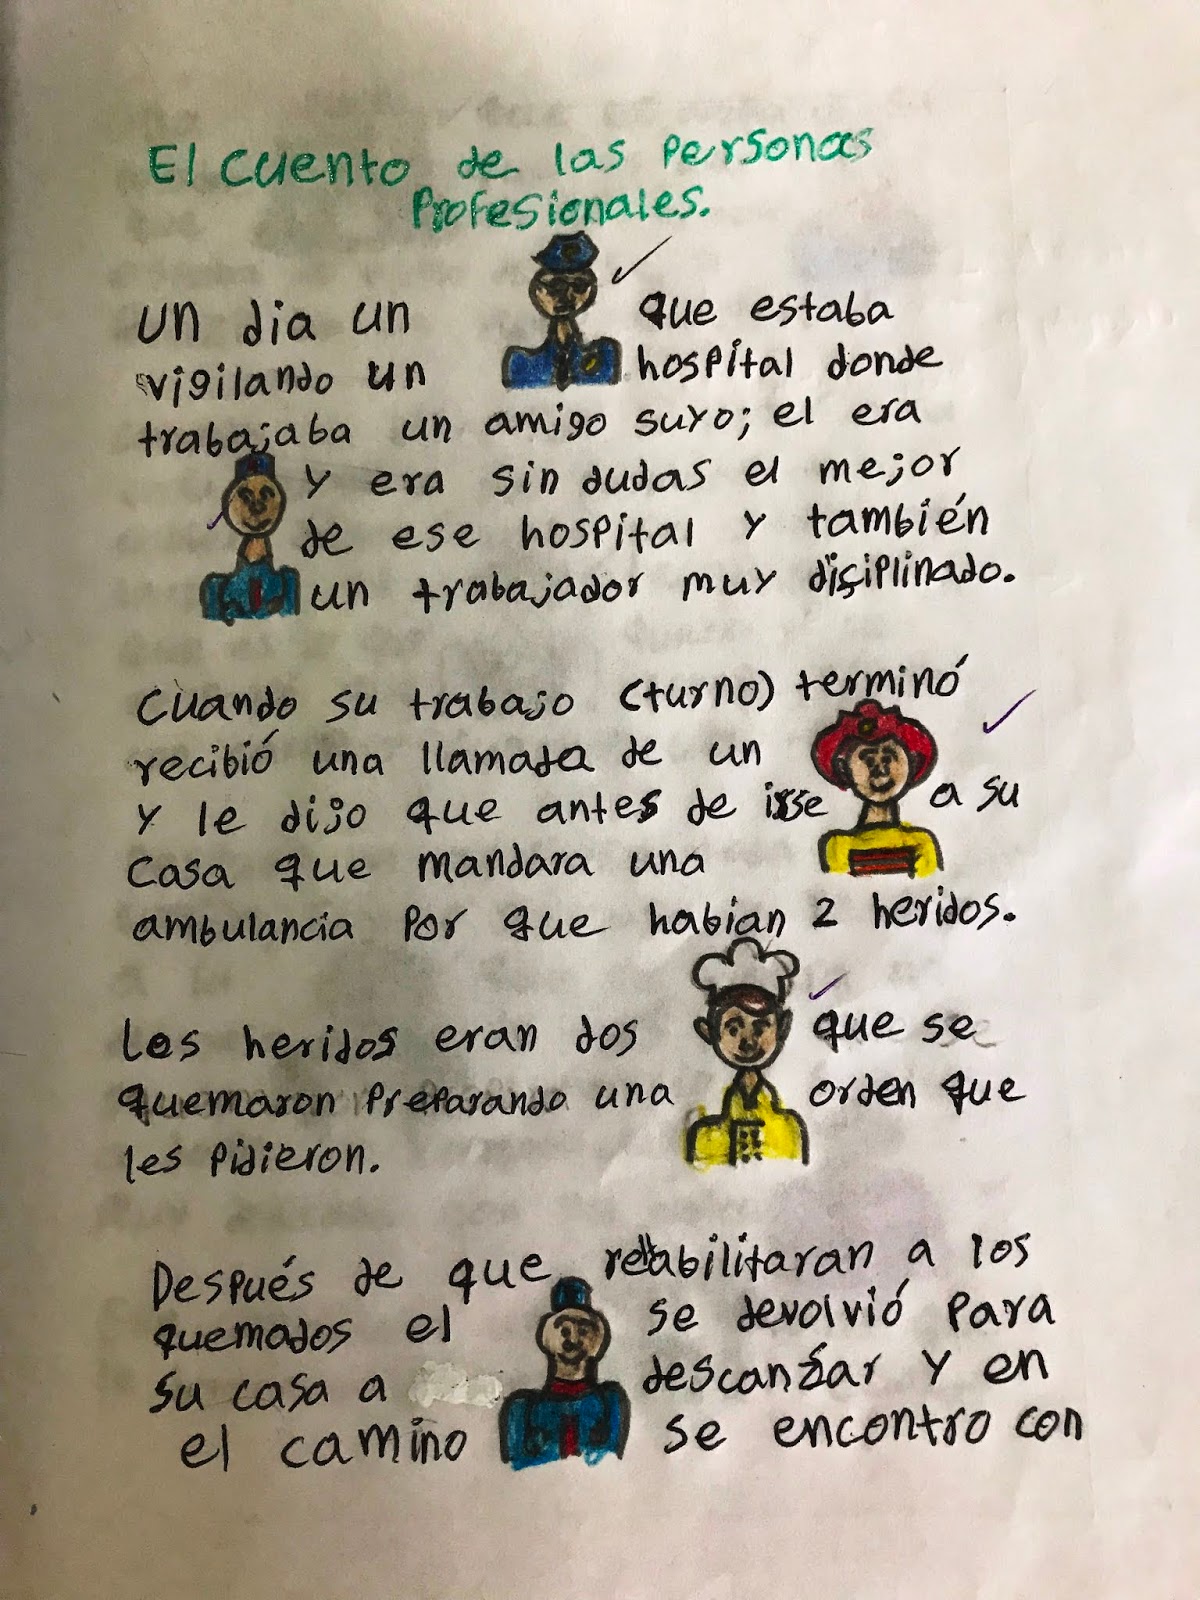 El cuento de las personas
Profesionales.
un dia un que estaba
vigilando un hospital donde
trabajaba un amigo suyo; el era
y era sin dudas el mejor
de ese hospital y también
un trabajador muy disiplinado.
Cuando su trabajo (turno) terminó
recibió una llamada de un
y le dijo que antes de irse a su
casa que mandara una
ambulancia por que habían 2 heridos.
Los heridos eran dos que se
quemaron preparando una orden que
les pidieron.
Después de que rehabilitaran a los
quemados el se devolvió para
su casa a descansar y en
el camino se encontro con